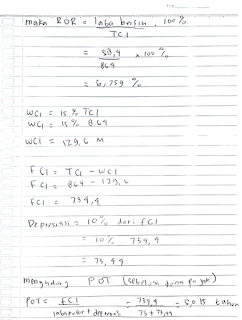 maka ROR = laba bersih . 100 %
TCI
= 58,4 x 100 %
864
= 6,759 %
WCI = 15 % TCI
WCI = 15 % 864
WCI = 129,6 M
FCI = TCI - WCI
FCI = 864 - 129,6
FCI = 734,4
Depresiasi = 10 % dari FCI
= 10 % 734,4
= 73,44
menghitung POT (sebelum
POT = FCI = 734,4 = 5,015 tahun
+ depresiasi 73 + 73,44